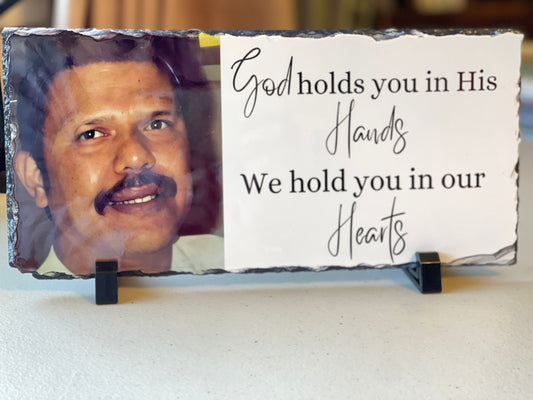 God holds you in His
Hands
We hold you in our
Hearts